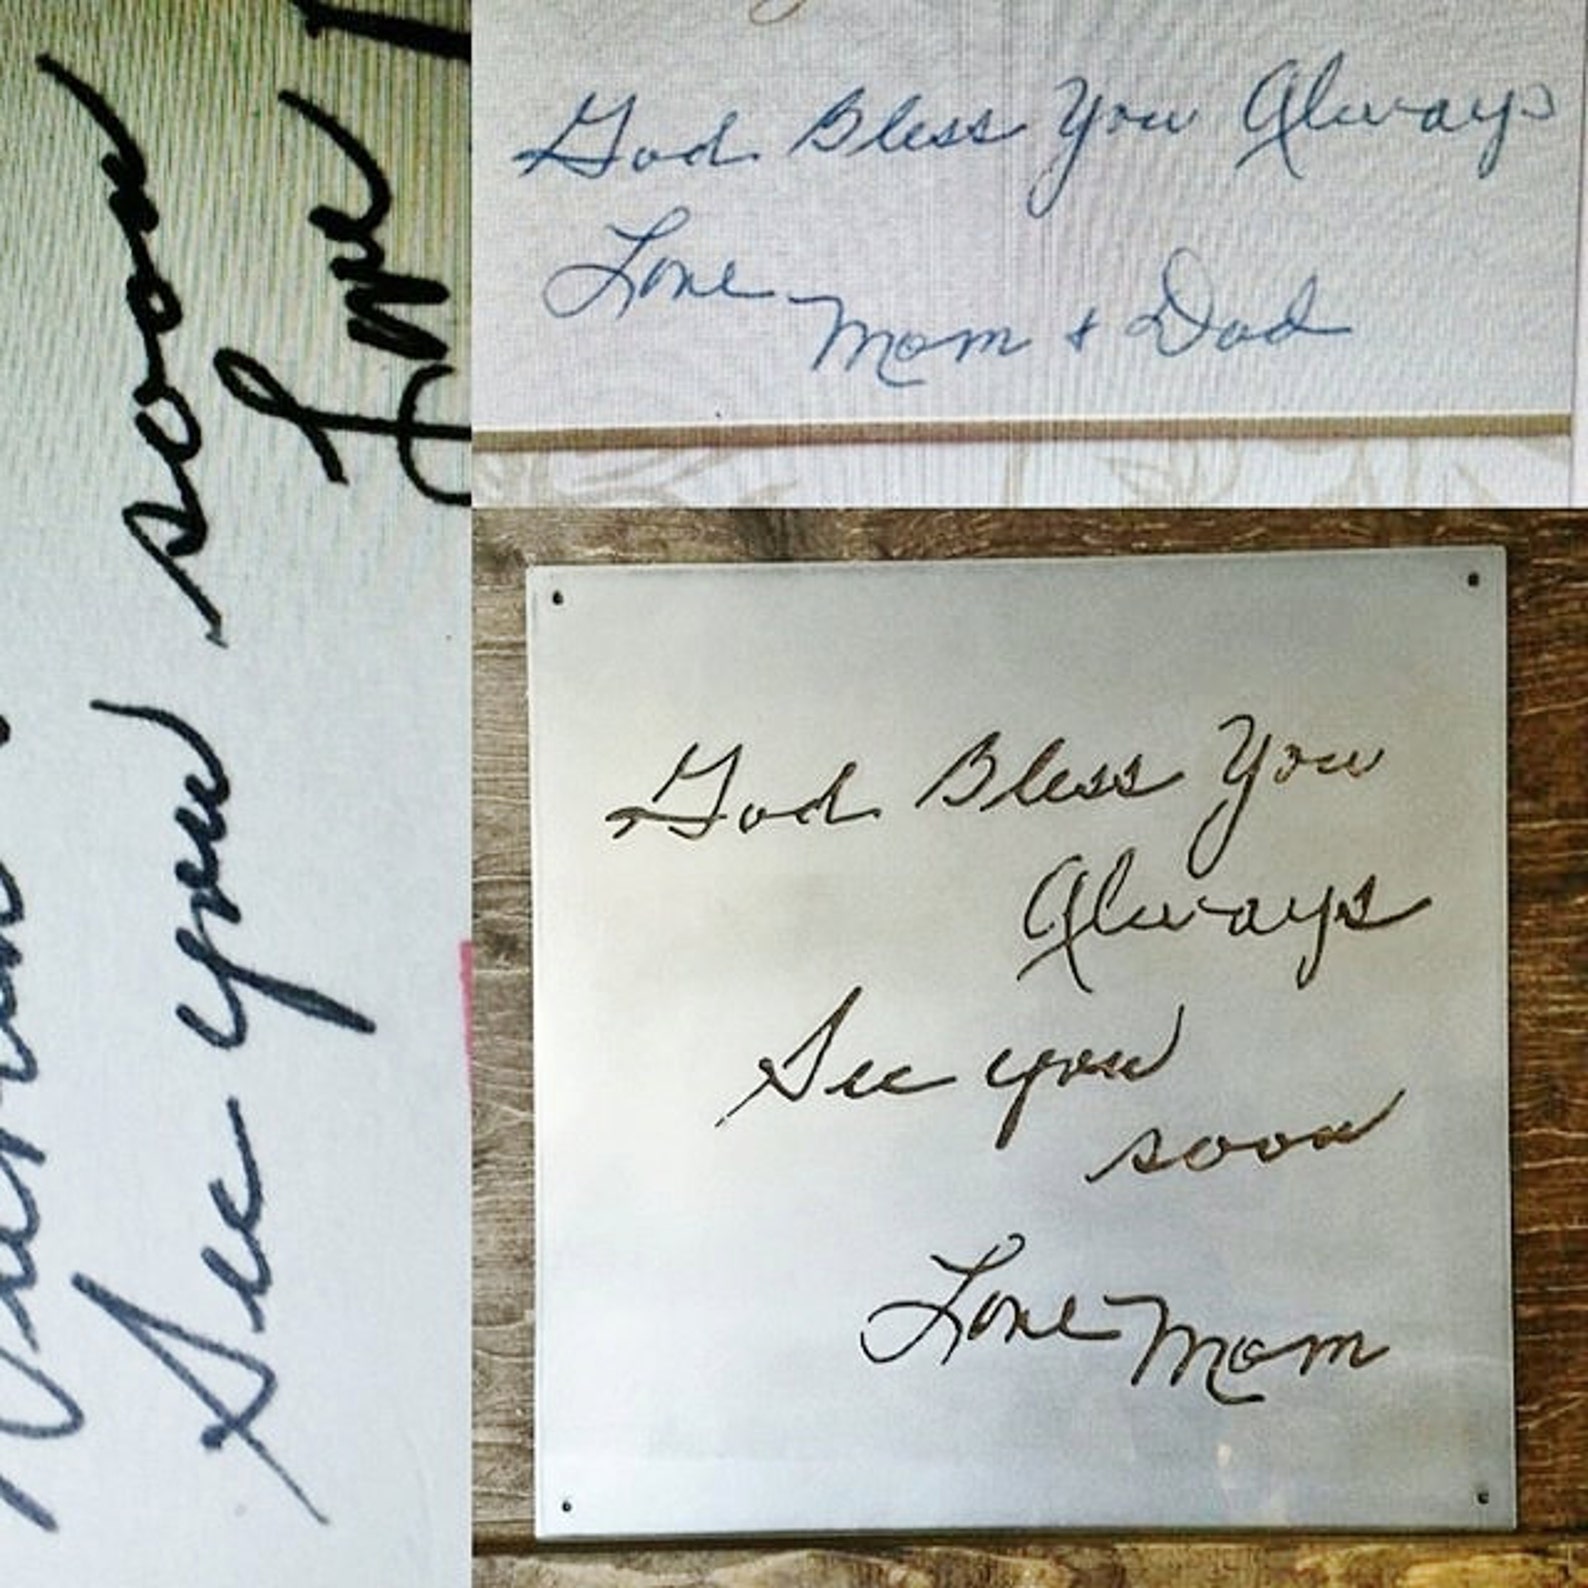 See you soon
Love
God Bless You Always
Love
Mom & Dad
God Bless You
Always
See you
soon
Love Mom